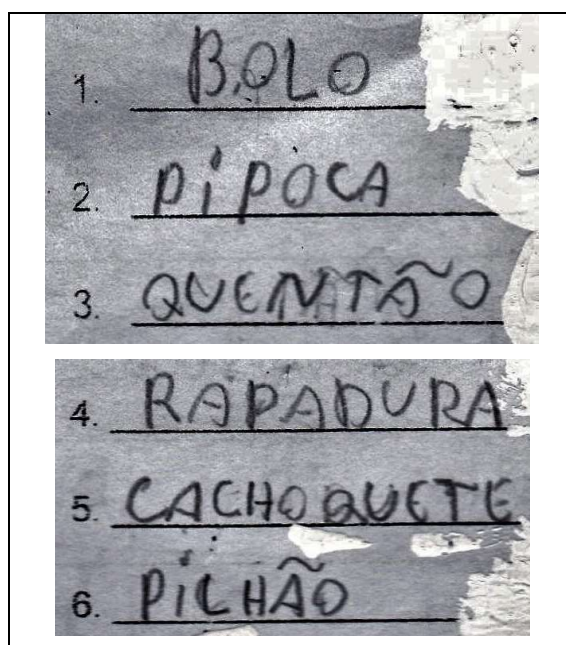 1. BOLO
2. PiPOCA
3. QUENTÃO
4. RAPADURA
5. CACHOQUETE
6. PiLHÃO